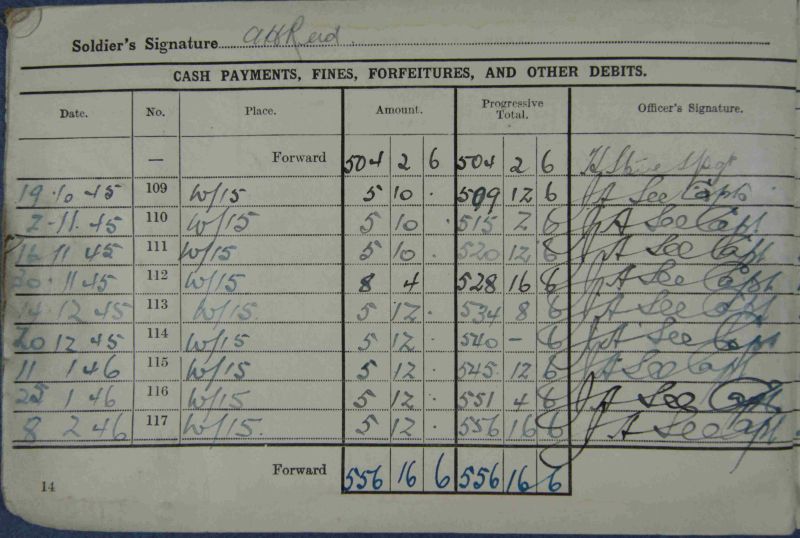 Soldier's Signature A H Reid
CASH PAYMENTS, FINES, FORFEITURES, AND OTHER DEBITS.
Date. No. Place. Amount. Progressive Total. Officer's Signature.
— Forward 504 2 6 504 2 6
19 10 45 109 W/15 5 10 · 509 12 6 J A See Capt
2-11-45 110 W/15 5 10 · 515 2 6 J A See Capt
16 11 45 111 W/15 5 10 · 520 12 6 J A See Capt
30 11 45 112 W/15 8 4 · 528 16 6 J A See Capt
14 12 45 113 W/15. 5 12 · 534 8 6 J A See Capt
20 12 45 114 W/15 5 12 · 540 – 6 J A See Capt
11 1 46 115 W/15 5 12 · 545 12 6 J A See Capt
25 1 46 116 W/15 5 12 · 551 4 6 J A See Capt
8 2 46 117 W/15. 5 12 · 556 16 6 J A See Capt
Forward 556 16 6 556 16 6
14